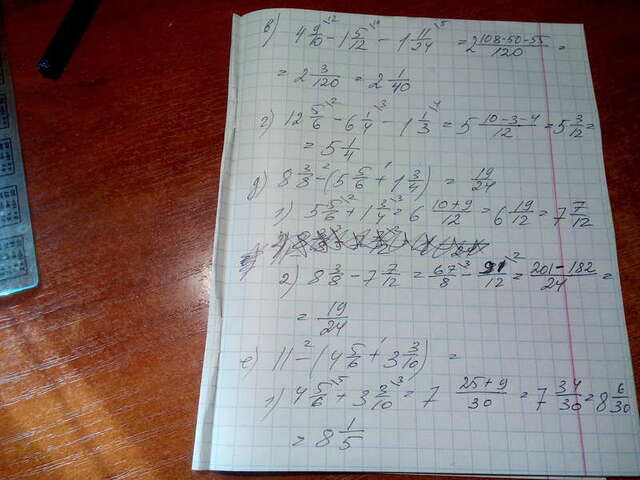 в) 4 9/10 \12 - 1 5/12 \10 - 1 11/24 \5 = 2 (108-50-55)/120 =
= 2 3/120 = 2 1/40
г) 12 5/6 \2 - 6 1/4 \3 - 1 1/3 \4 = 5 (10-3-4)/12 = 5 3/12 =
= 5 1/4
д) 8 3/8 - (5 5/6 + 1 3/4) = 19/24
1) 5 5/6 \2 + 1 3/4 \3 = 6 (10+9)/12 = 6 19/12 = 7 7/12
2) 8 3/8 - 7 7/12 = 67/8 \3 - 91/12 \2 = (201-182)/24 =
= 19/24
е) 11 - (4 5/6 + 3 3/10) =
1) 4 5/6 \5 + 3 3/10 \3 = 7 (25+9)/30 = 7 34/30 = 8 6/30
= 8 1/5